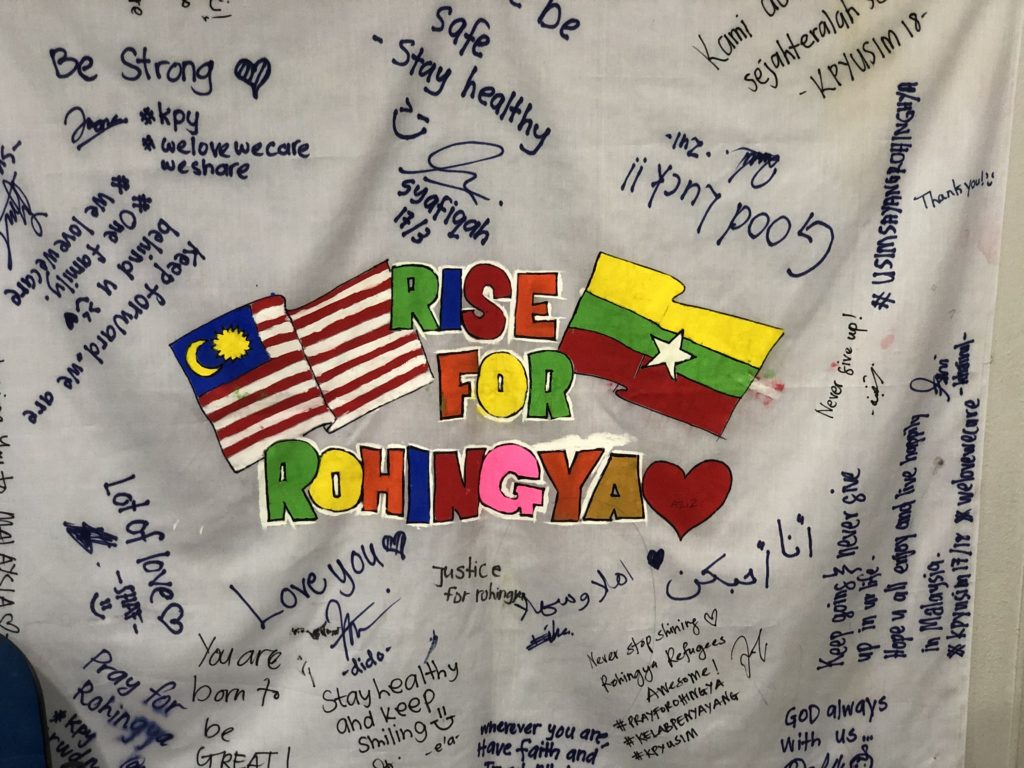 Be Strong
#kpy
#welovewecare
weshare
be
safe
- Stay healthy
syafiqah
17/3
Kami
sejahteralah
- KPYUSIM 18 -
Good Luck ii
Thank you!!
# USIMSAYANGROHINGHYA
keep forward. we are
behind u
#One family.
# we lovewecare
RISE
FOR
ROHINGYA
Never give up!
Lot of love
- SHAF -
Love you
- dido -
Justice
for rohingya
انا احبكن
املا وسهلا
Keep going & never give
up in ur life.
Hope u all enjoy and live happily
in Malaysia.
# kpyusim 17/18 # welovewecare
Pray for
Rohingya
#kpy
You are
born to
be
GREAT!
Stay healthy
and keep
smiling
- e'a -
Never stop shining
Rohingya Refugees
Awesome!
#PRAYFORROHINGYA
#KELABPENYAYANG
#KPYUSIM
wherever you are
Have faith and
GOD always
with us
MALAYSIA